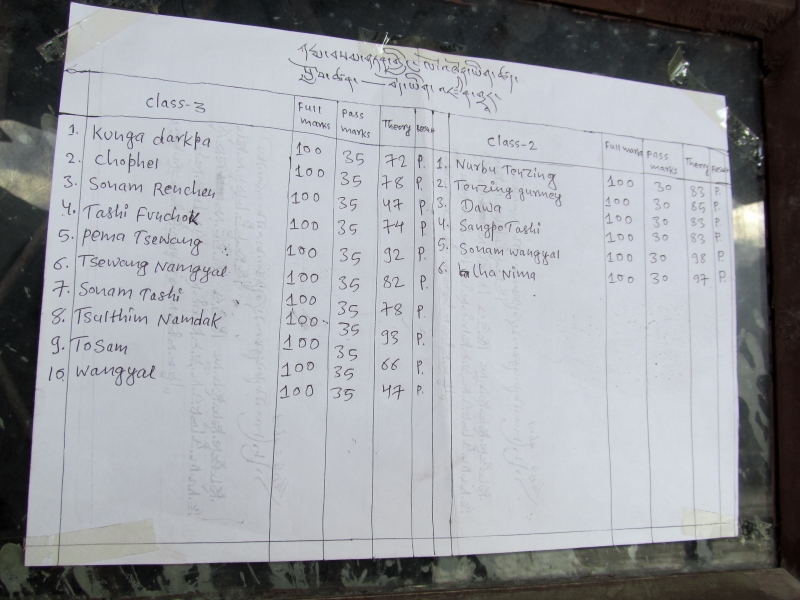 Class-3 Full marks Pass marks Theory
1. Kunga darkpa 100 35 72 P.
2. Chophel 100 35 78 P.
3. Sonam Renchen 100 35 47 P.
4. Tashi Funchok 100 35 74 P.
5. Pema Tsewang 100 35 92 P.
6. Tsewang Namgyal 100 35 82 P.
7. Sonam Tashi 100 35 78 P.
8. Tsulthim Namdak 100 35 93 P.
9. ToSam 100 35 66 P.
10. wangyal 100 35 47 P.
Class-2 Full marks Pass marks Theory
1. Nurbu Tenzing 100 30 83 P.
2. Tenzing gurmey 100 30 85 P.
3. Dawa 100 30 83 P.
4. Sangpo Tashi 100 30 83 P.
5. Sonam wangyal 100 30 98 P.
6. lha Nima 100 30 97 P.